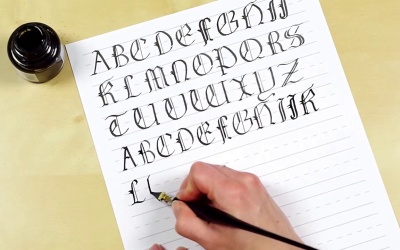 ABCDEFGHIJ
KLMNOPQRS
TUVWXYZ
ABCDEFGHIJK
L